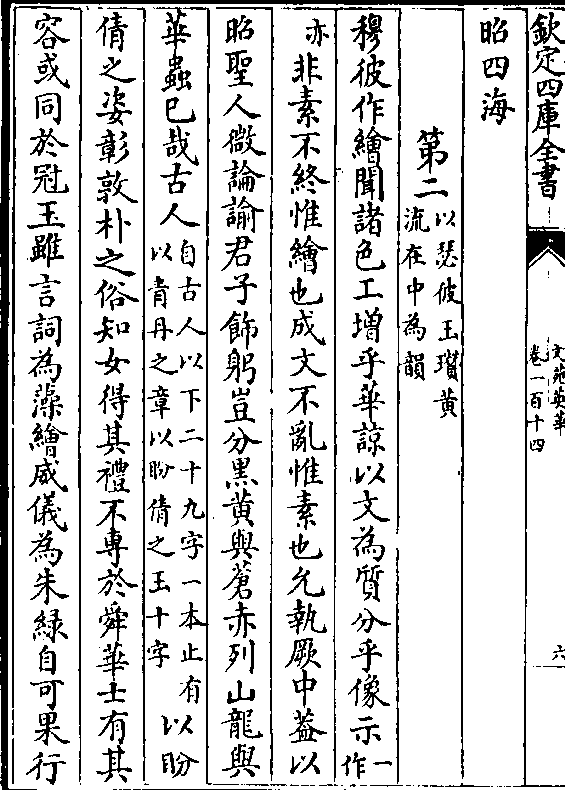 欽定四庫全書
文苑英華
卷一百十四
六
昭四海
第二以瑟彼玉瓚黃
流在中為韻
穆彼作繪聞諸色工增乎華諒以文為質分乎像示一
作
亦非素不終惟繪也成文不亂惟素也允執厥中葢以
昭聖人微論諭君子飾躬豈分黑黃與蒼赤列山龍與
華蟲已哉古人自古人以下二十九字一本止有
以青丹之章以盼倩之玉十字以盼
倩之姿彰敦朴之俗知女得其禮不專於舜華士有其
容或同於冠玉雖言詞為藻繪威儀為朱綠自可果行